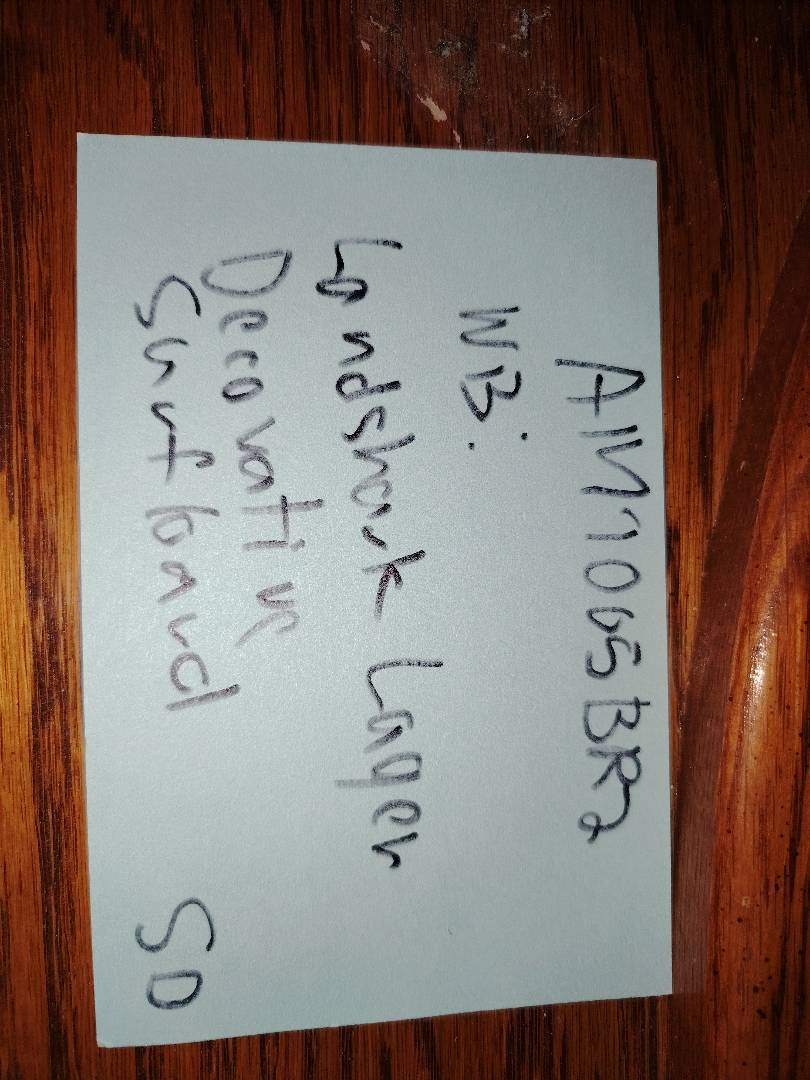 AM7065BR2
WB:
Landshark Lager
Decorative
Surfboard
SD